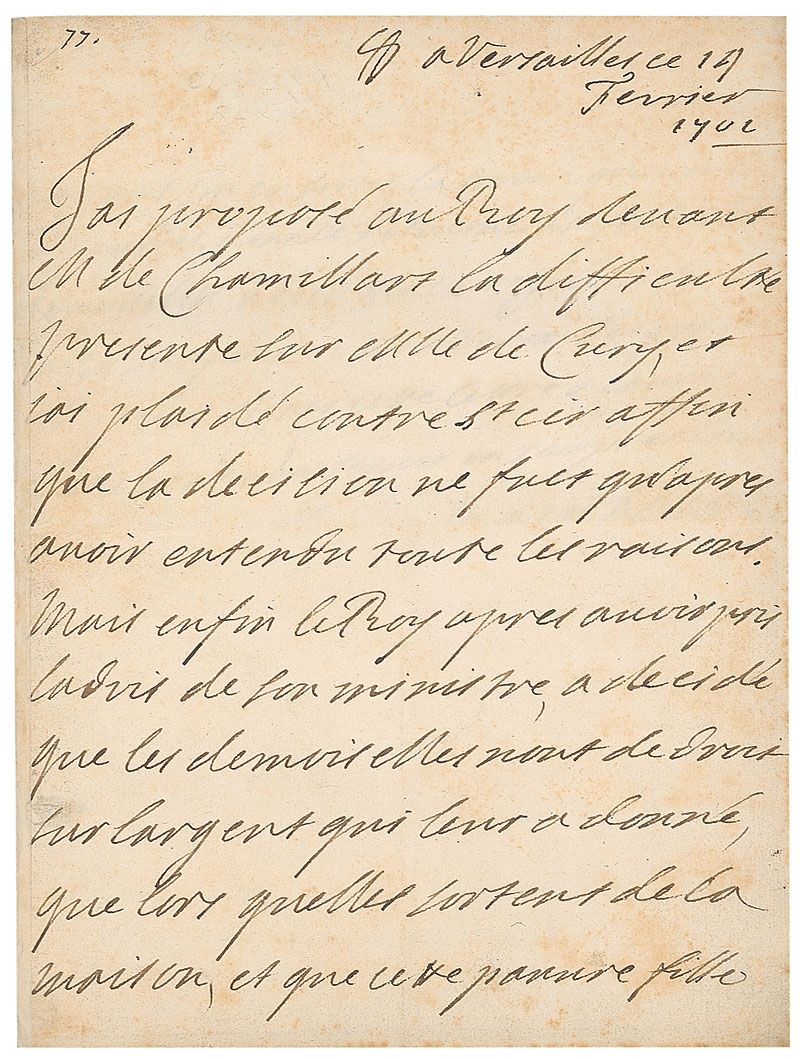 77.
a Versailles ce 14
Fevrier
1702
Jai proposé au Roy devant
M de Chamillart la difficulte
presente sur Mlle de Cury, et
jai plaidé contre St cir affin
que la decision ne fust qu'apres
avoir entendu toute les raisons.
Mais enfin le Roy apres avoir pris
ladvis de son ministre, a decidé
que les demoiselles nont de droit
sur largent qui leur a donné,
que lors quelles sortent de la
maison, et que cette pauvre fille